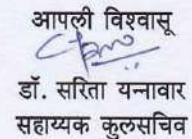 आपली विश्वासू
डॉ. सरिता यन्नावार
सहाय्यक कुलसचिव